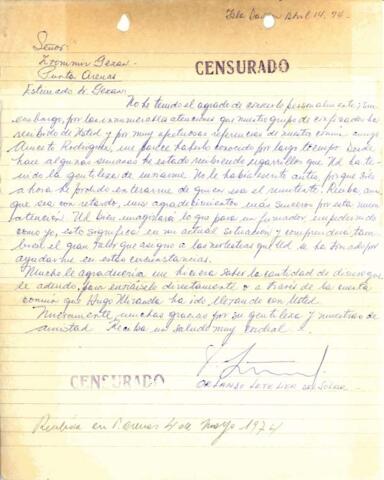 Isla Dawson Abril 14, 74.
Señor
CENSURADO
Punta Arenas
Estimado Sr.
No he tenido el agrado de conocerlo personalmente; sin
embargo, por las innumerables atenciones que nuestro grupo de confinados ha
recibido de Usted y por muy afectuosas referencias de nuestro común amigo
Aniceto Rodríguez, me parece haberlo conocido por largo tiempo. Desde
hace algunas semanas he estado recibiendo cigarrillos que Ud. ha te-
nido la gentileza de enviarme. No le había escrito antes, porque sólo
ahora he podido enterarme de quien era el remitente. Reciba, aun-
que sea con retardo, mis agradecimientos más sinceros por esta nueva
atención. Ud. bien imaginará lo que para un fumador empedernido
como yo, esto significa en mi actual situación y comprenderá tam-
bién el gran valor que asigno a las molestias que Ud. se ha tomado por
ayudarme en estas circunstancias.
Mucho le agradecería me hiciera saber la cantidad de dinero que
le adeudo, para enviárselo directamente o a través de la cuenta
común que Hugo Miranda ha ido llevando con Usted.
Nuevamente, muchas gracias por su gentileza y muestras de
amistad. Reciba un saludo muy cordial.
ORLANDO LETELIER DEL SOLAR
CENSURADO
Recibida en P. Arenas 4 de Mayo 1974